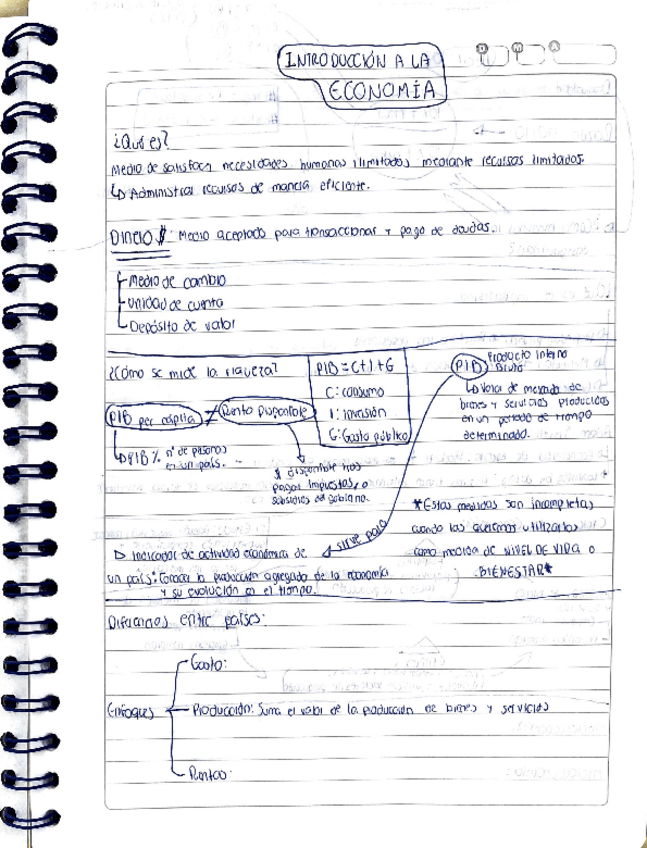 INTRODUCCIÓN A LA
ECONOMÍA
¿Qué es?
Medio de satisfacer necesidades humanas ilimitadas mediante recursos limitados.
↳ Administrar recursos de manera eficiente.
Dinero $: Medio aceptado para transaccionar y pago de deudas.
Medio de cambio
Unidad de cuenta
Depósito de valor
¿Cómo se mide la riqueza?
PIB = C+I+G
C: consumo
I: inversión
G: Gasto público
PIB Producto Interno
Bruto
↳ Valor de mercado de
bienes y servicios producidos
en un periodo de tiempo
determinado.
PIB per cápita ≠ Renta Disponible
↳ PIB % n° de personas
en un país.
$ disponible tras
pagar impuestos, o
subsidios del gobierno.
*Estas medidas son incompletas
cuando las queremos utilizarlos
como medida de NIVEL DE VIDA o
BIENESTAR*
sirve para
▷ Indicador de actividad económica de
un país: Conocer la producción agregada de la economía
y su evolución en el tiempo.
Diferencias entre países:
Enfoques
Gasto:
Producción: Suma el valor de la producción de bienes y servicios
Rentas: